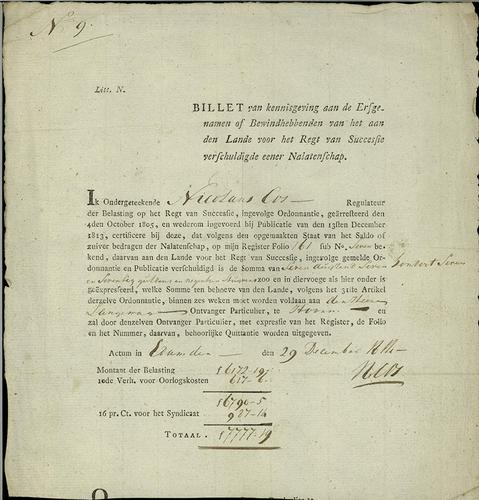 No 9.
Litt. N.
BILLET van kennisgeving aan de Erfge-
namen of Bewindhebbenden van het aan
den Lande voor het Regt van Successie
verschuldigde eener Nalatenschap.
Ik Ondergeteekende Nicolaas Cos Regulateur
der Belasting op het Regt van Successie, ingevolge Ordonnantie, geärresteerd den
4den October 1805, en wederom ingevoerd bij Publicatie van den 13den December
1813, certificeere bij deze, dat volgens den opgemaakten Staat van het Saldo of
zuiver bedragen der Nalatenschap, op mijn Register Folio 161 sub No. Seven be-
kend, daarvan aan den Lande voor het Regt van Successie, ingevolge gemelde Or-
donnantie en Publicatie verschuldigd is de Somma van Seven duisend Seven hondert Seven
en Seventig guldens en negentien stuivers zoo en in diervoege als hier onder is
gëexpresseerd, welke Somme ten behoeve van den Lande, volgens het 31ste Artikel
derzelve Ordonnantie, binnen zes weken moet worden voldaan aan den Heere
Ontvanger Particulier, te Hoorn en
zal door denzelven Ontvanger Particulier, met expressie van het Register, de Folio
en het Nummer, daarvan, behoorlijke Quittantie worden uitgegeven.
Actum in Edam den 29 December
Montant der Belasting f6172-19
10de Verh. voor Oorlogskosten 617-6
f6790-5
16 pr. Ct. voor het Syndicaat 987-14
TOTAAL. f7777-19
NCos